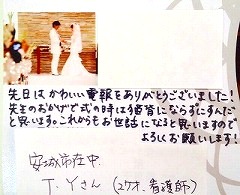 先日はかわいい電報をありがとうございました!
先生のおかげで式の時は猫背にならずにすんだ
と思います。これからもお世話になると思いますので
よろしくお願いします!
安城市在中
T.Yさん (27才、看護師)